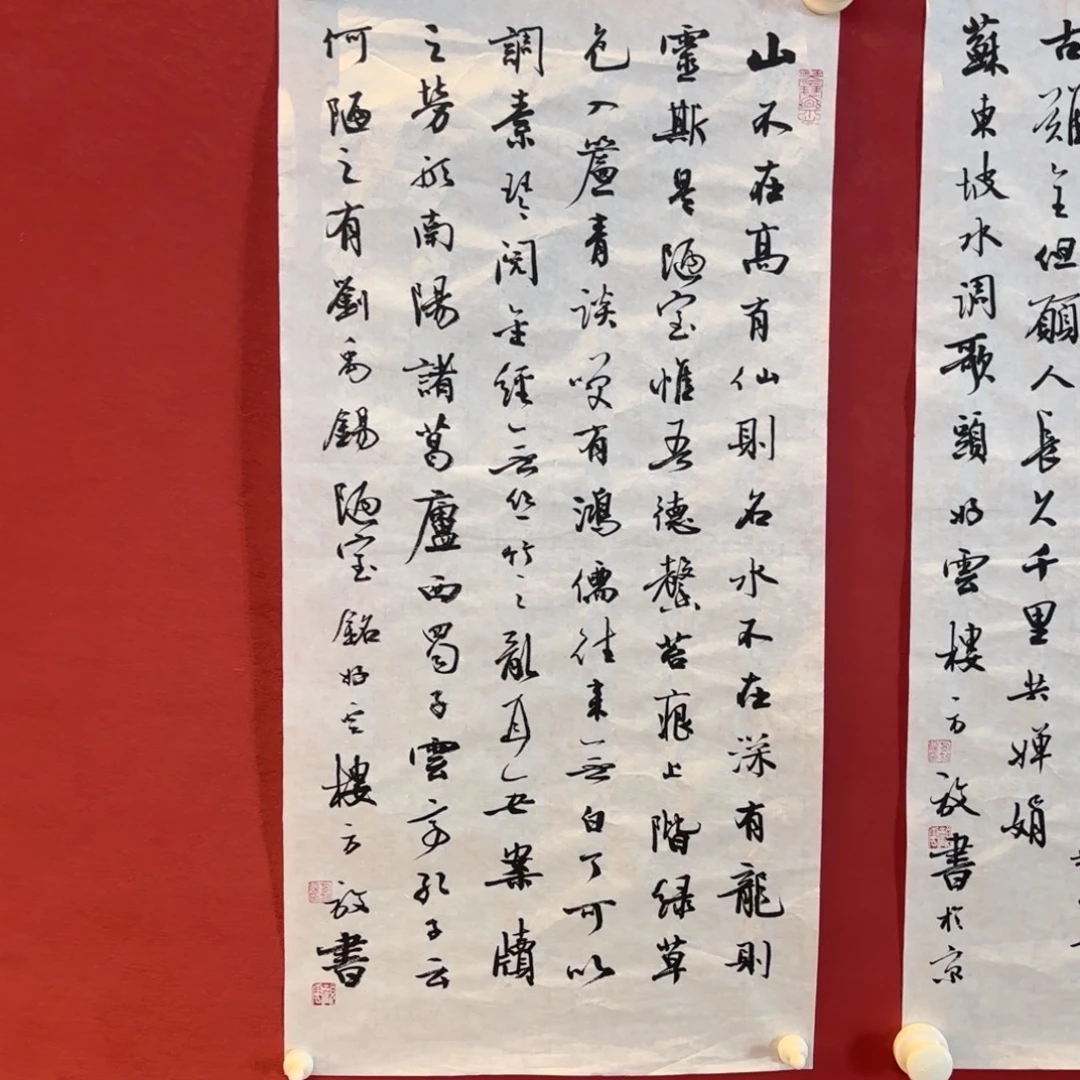 古難全但願人長久千里共嬋娟
蘇東坡水調歌頭好雲樓方放書於京
山不在高有仙則名水不在深有龍則
靈斯是陋室惟吾德馨苔痕上階綠草
色入簾青談笑有鴻儒往來無白丁可以
調素琴閱金經無絲竹之亂耳無案牘
之勞形南陽諸葛廬西蜀子雲亭孔子云
何陋之有劉禹錫陋室銘好雲樓方放書